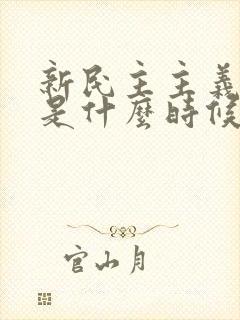 新民主主義
是什麼時候
官山月